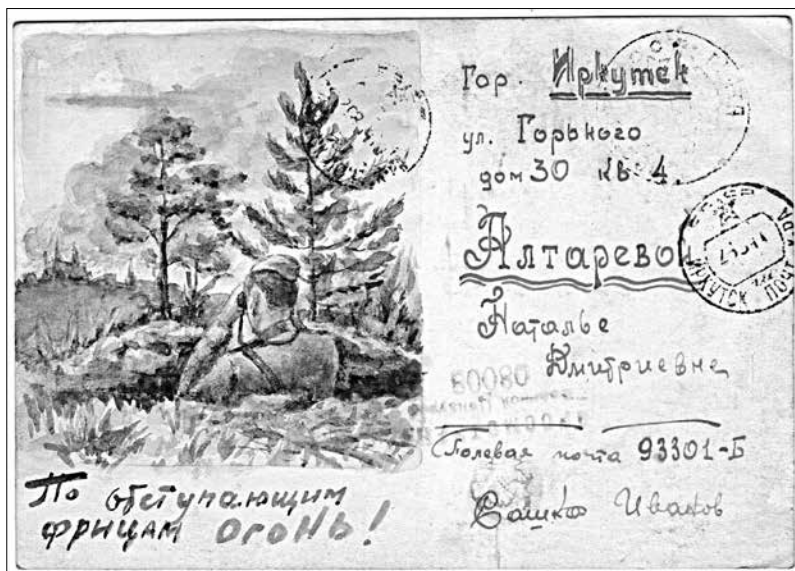 Гор. Иркутск
ул. Горького
дом 30 кв 4
Алтаревой
Наталье
Дмитриевне
80080
Полевая почта 93301-Б
Сашко Иванов
По обступающим
фрицам огонь!
ИРКУТСК ПОЧТА